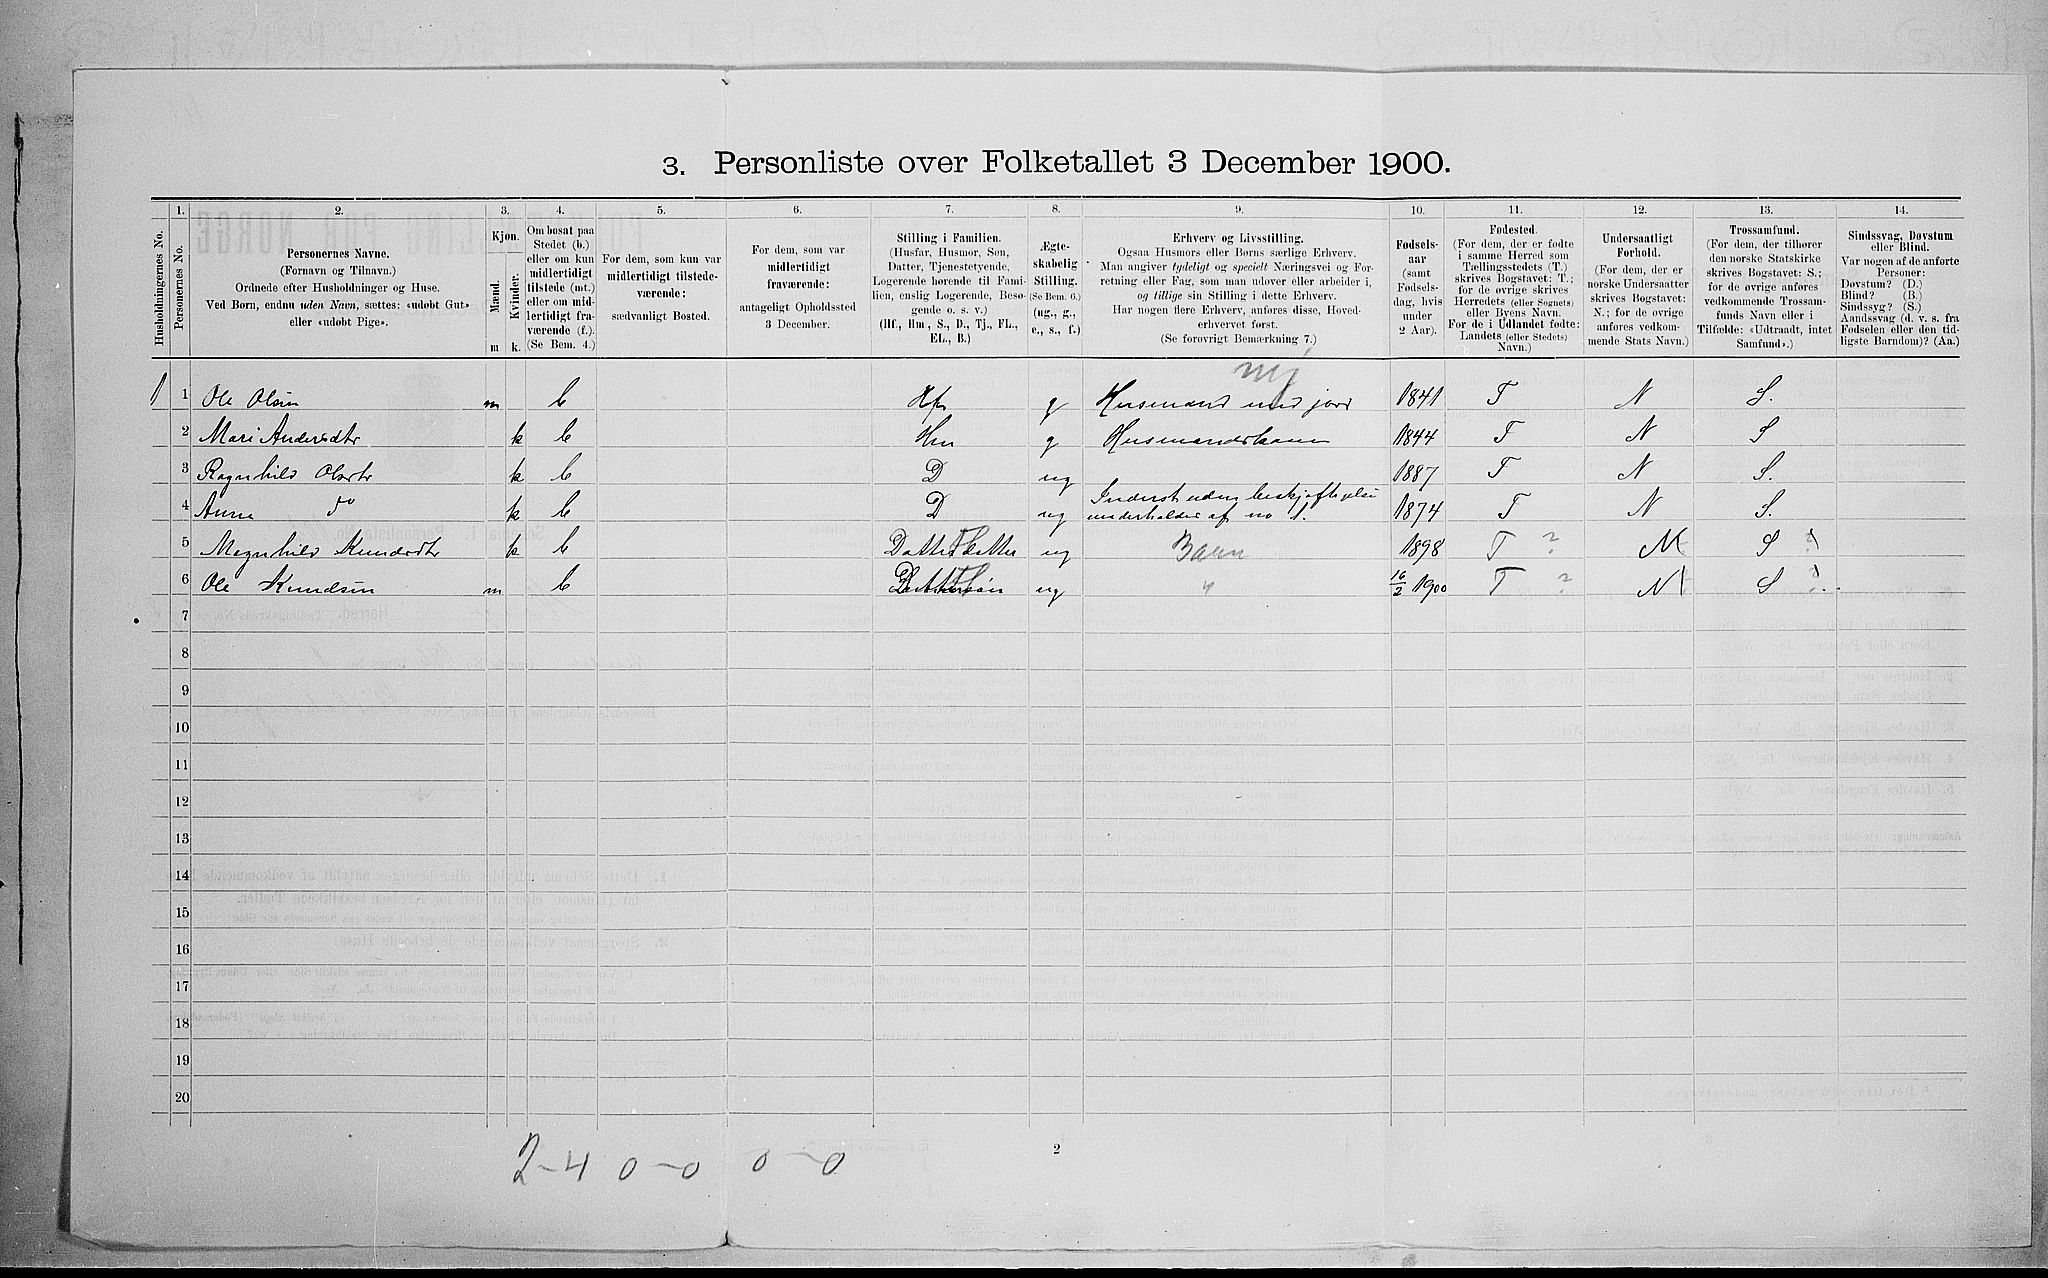 3. Personliste over Folketallet 3 December 1900.
1. 2. 3. 4. 5. 6. 7. 8. 9. 10. 11. 12. 13. 14.
Husholdningernes No.
Personernes No.
Personernes Navne.
(Fornavn og Tilnavn.)
Ordnede efter Husholdninger og Huse.
Ved Børn, endnu uden Navn, sættes: «udøbt Gut»
eller «udøbt Pige».
Kjøn.
Mænd.
Kvinder.
m k.
Om bosat paa
Stedet (b.)
eller om kun
midlertidigt
tilstede (mt.)
eller om mid-
lertidigt fra-
værende (f.).
(Se Bem. 4.)
For dem, som kun var
midlertidigt tilstede-
værende:
sædvanligt Bosted.
For dem, som var
midlertidigt
fraværende:
antageligt Opholdssted
3 December.
Stilling i Familien.
(Husfar, Husmor, Søn,
Datter, Tjenestetyende,
Logerende hørende til Fami-
lien, enslig Logerende, Besø-
gende o. s. v.)
(Hf., Hm., S., D., Tj., FL.,
EL., B.)
Ægte-
skabelig
Stilling.
(Se Bem. 6.)
(ug., g.,
e., s., f.)
Erhverv og Livsstilling.
Ogsaa Husmors eller Børns særlige Erhverv.
Man angiver tydeligt og specielt Næringsvei og For-
retning eller Fag, som man udover eller arbeider i,
og tillige sin Stilling i dette Erhverv.
Har nogen flere Erhverv, anføres disse, Hoved-
erhvervet først.
(Se forøvrigt Bemærkning 7.)
Fødsels-
aar
(samt
Fødsels-
dag, hvis
under
2 Aar).
Fødested.
(For dem, der er fødte
i samme Herred som
Tællingsstedets (T.)
skrives Bogstavet: T.;
for de øvrige skrives
Herredets (eller Sognets)
eller Byens Navn.
For de i Udlandet fødte:
Landets (eller Stedets)
Navn.)
Undersaatligt
Forhold.
(For dem, der er
norske Undersaatter
skrives Bogstavet:
N.; for de øvrige
anføres vedkom-
mende Stats Navn.)
Trossamfund.
(For dem, der tilhører
den norske Statskirke
skrives Bogstavet: S.;
for de øvrige anføres
vedkommende Trossam-
funds Navn eller i
Tilfælde: «Udtraadt, intet
Samfund».)
Sindssvag, Døvstum
eller Blind.
Var nogen af de anførte
Personer:
Døvstum? (D.)
Blind? (B.)
Sindssyg? (S.)
Aandssvag (d. v. s. fra
Fødselen eller den tid-
ligste Barndom)? (Aa.)
1 1 Ole Olsen m b Hf g Husmand med jord 1841 T N S.
2 Mari Andersdtr k b Hm g Husmandskone 1844 T N S
3 Ragnhild Olsdtr k b D ug 1887 T N S.
4 Anne do k b D ug Inderst uden beskjæftigelse
underholdes af no 1. 1874 T N S.
5 Magnhild Knudsdtr k b Datterdatter ug Barn 1898 T ? N S ?
6 Ole Knudsen m b Dattersøn ug " 16/2 1900 T ? N S ?
7
8
9
10
11
12
13
14
15
16
17
18
19
20
2-4 0-0 0-0
2